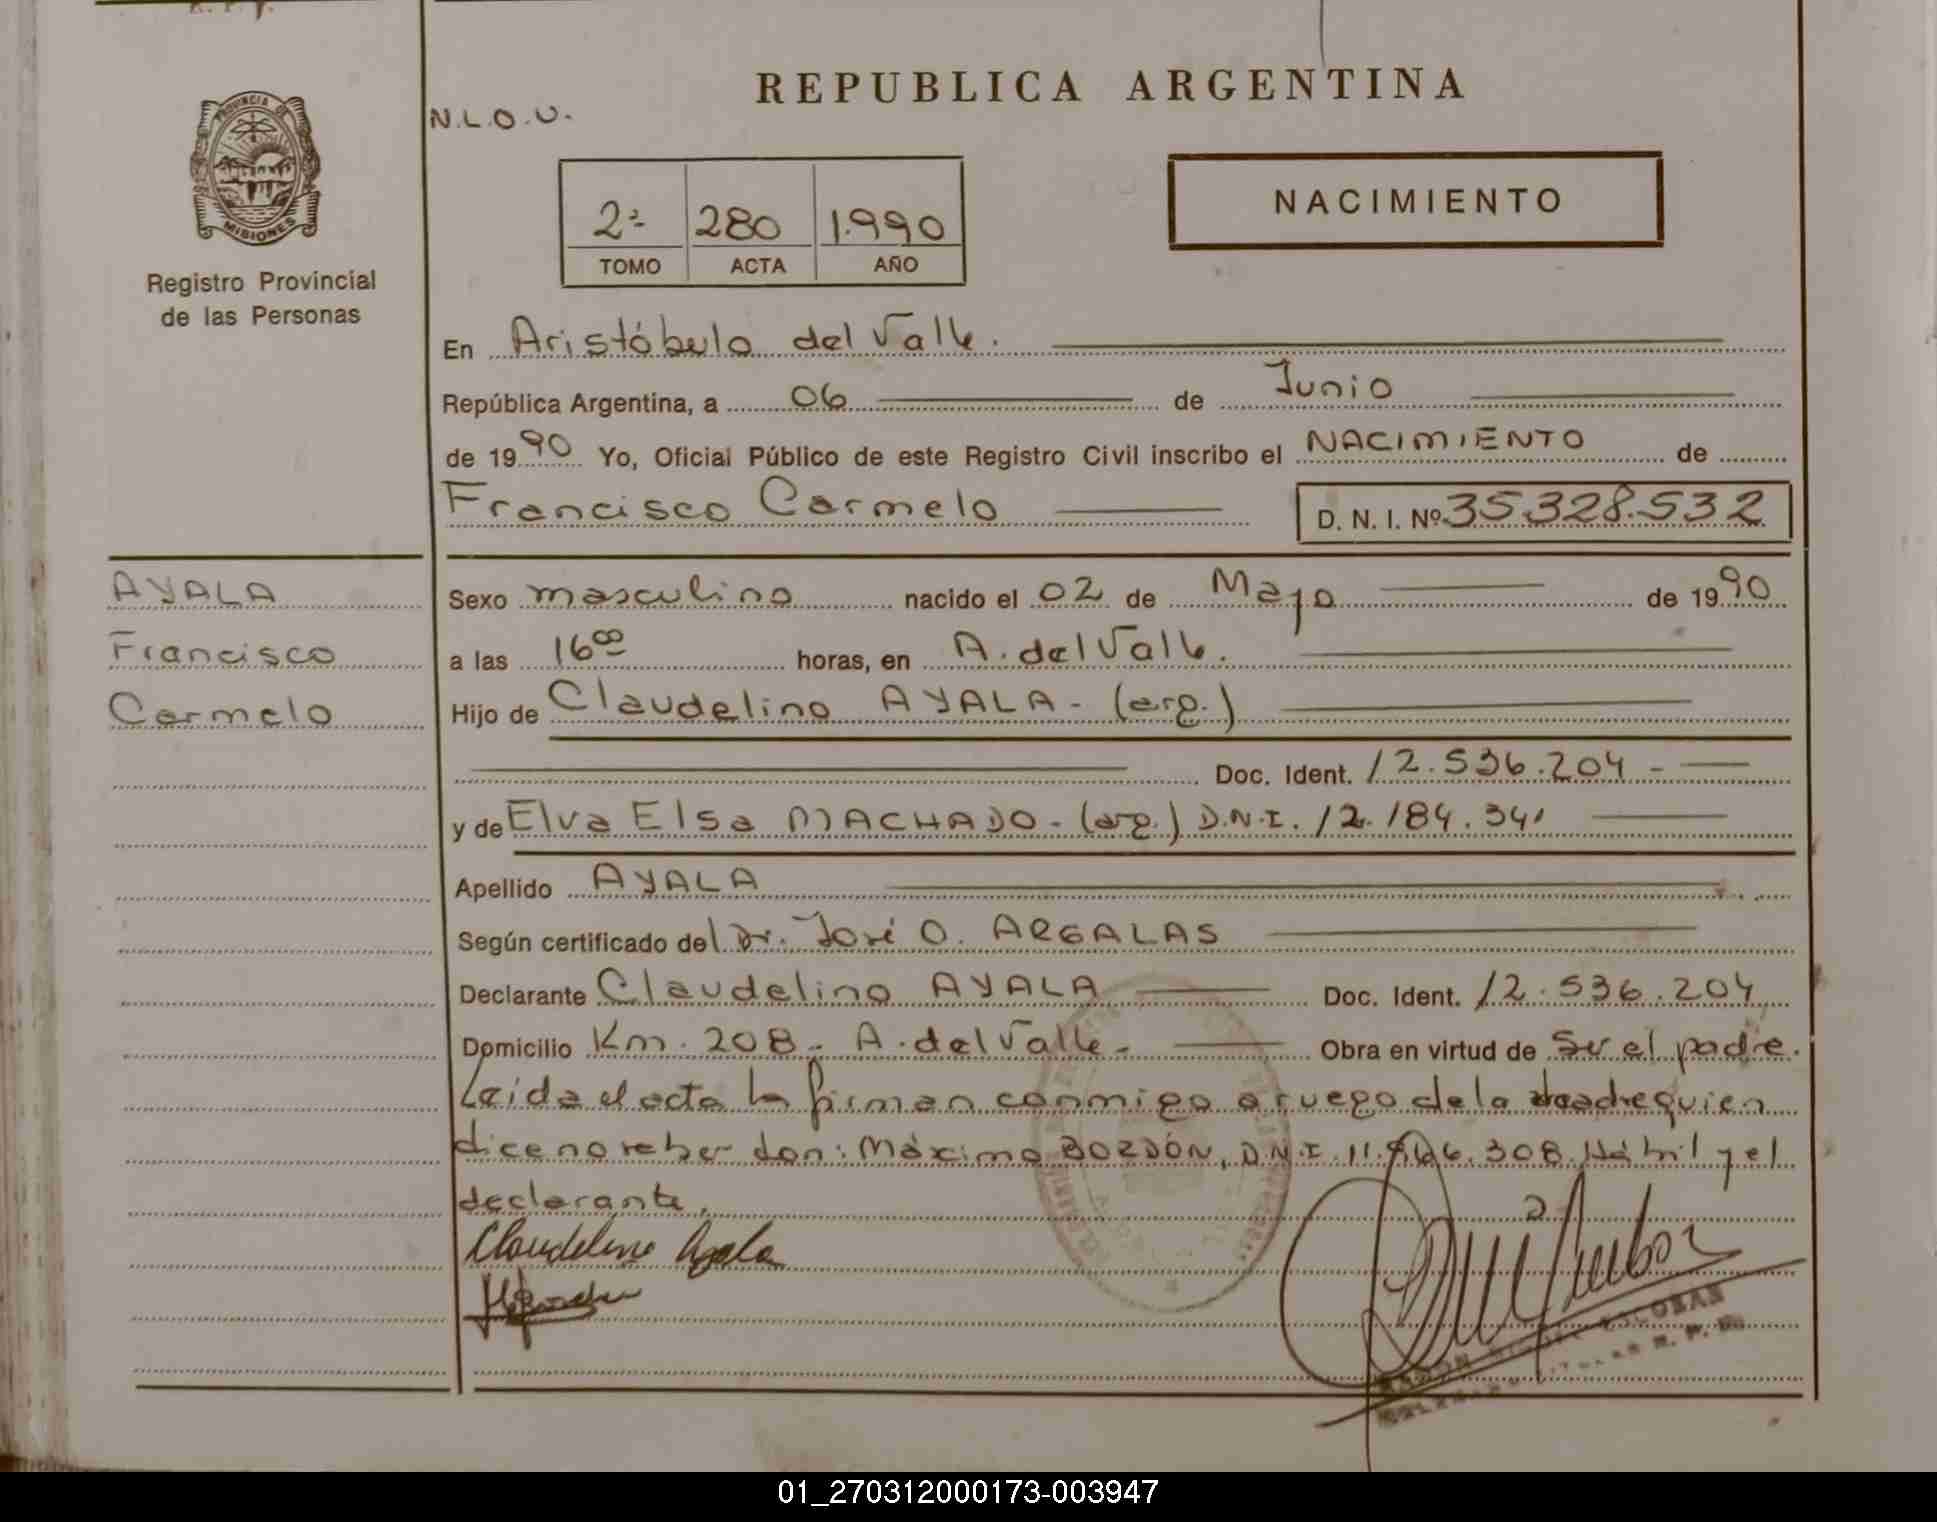 N.L.O.U.
REPUBLICA ARGENTINA
PROVINCIA DE
MISIONES
Registro Provincial
de las Personas
2ª 280 1.990
TOMO ACTA AÑO
NACIMIENTO
En Aristóbulo del Valle.
República Argentina, a 06 de Junio
de 1990 Yo, Oficial Público de este Registro Civil inscribo el NACIMIENTO de
Francisco Carmelo D. N. I. Nº 35.328.532
AYALA
Francisco
Carmelo
Sexo masculino nacido el 02 de Mayo de 1990
a las 16⁰⁰ horas, en A. del Valle.
Hijo de Claudelino AYALA - (arg.)
Doc. Ident. 12.536.204 -
y de Elva Elsa MACHADO - (arg.) D.N.I. 12.184.341
Apellido AYALA
Según certificado del Dr. José O. ARGALAS
Declarante Claudelino AYALA Doc. Ident. 12.536.204
Domicilio Km. 208 - A. del Valle - Obra en virtud de Ser el padre.
Leida el acta la firman conmigo a ruego de la madre quien
dice no saber don: Máximo BORDÓN, D.N.I. 11. .308 Hábil y el
declarante.
Claudelino Ayala
01_270312000173-003947